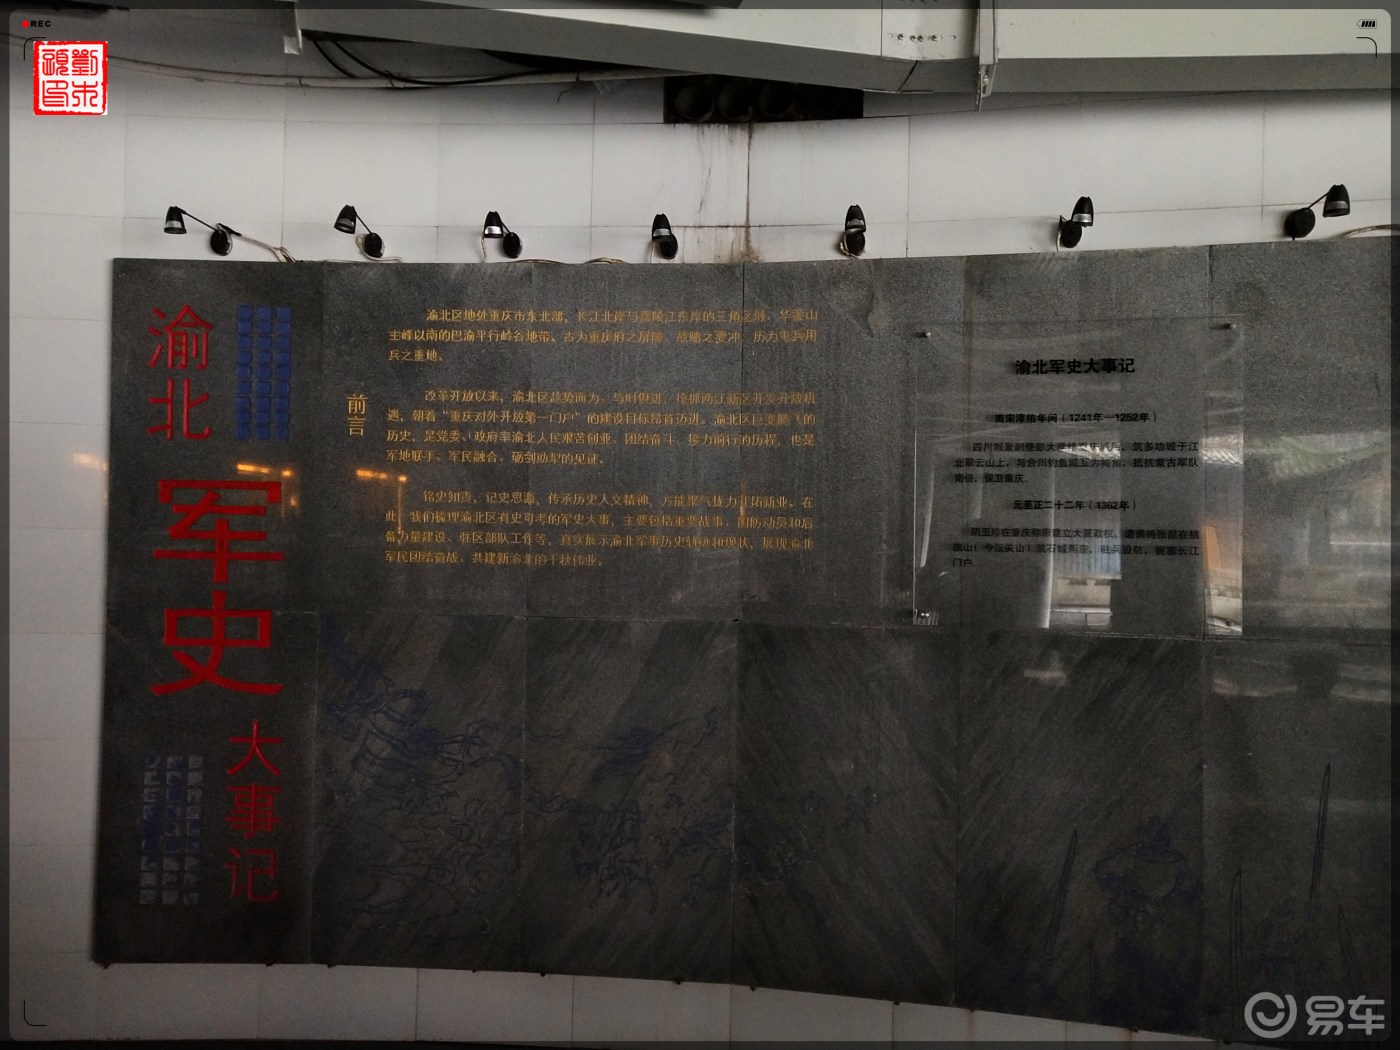 REC
渝北
军史
大事记
前言
渝北区地处重庆市东北部，长江北岸与嘉陵江东岸的三角区域，华蓥山
主峰以南的巴渝平行岭谷地带。古为重庆府之屏障、战略之要冲、历为屯兵用
兵之重地。
改革开放以来，渝北区趁势而为、与时俱进、抢抓两江新区开发开放机
遇，朝着“重庆对外开放第一门户”的建设目标昂首迈进。渝北区巨变腾飞的
历史，是党委、政府率渝北人民艰苦创业、团结奋斗、接力前行的历程，也是
军地联手、军民融合、砺剑助犁的见证。
铭史知责，记史思源。传承历史人文精神，方能聚气扬力开拓新业。在
此，我们梳理渝北区有史可考的军史大事，主要包括重要战事、国防动员和后
备力量建设、驻区部队工作等，真实展示渝北军事历史轨迹和现状，展现渝北
军民团结奋战、共建新渝北的千秋伟业。
渝北军史大事记
南宋淳佑年间（1241年—1252年）
四川制置副使彭大雅 筑多功城于江
北翠云山上，与合川钓鱼城互为犄角，抵抗蒙古军队
南侵，保卫重庆。
元至正二十二年（1362年）
明玉珍在重庆称帝建立大夏政权，
山（今 山）筑石城 ，驻兵设防，扼塞长江
门户。
易车